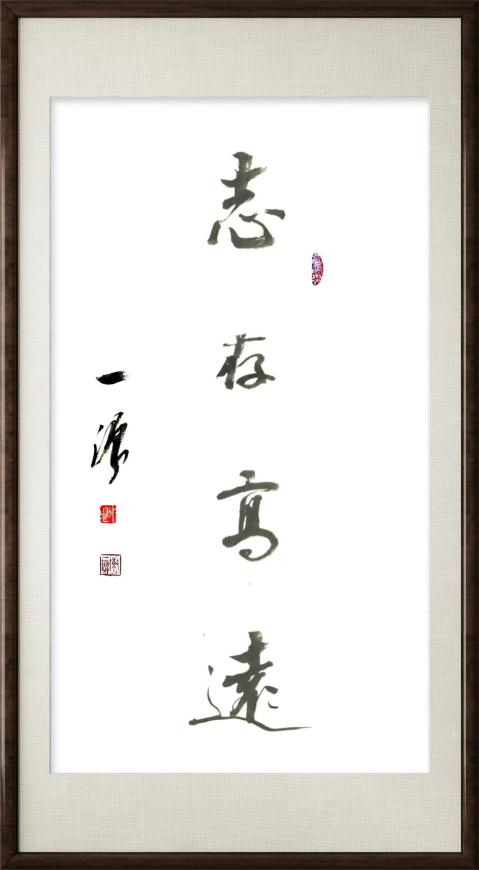 志存高遠
一源